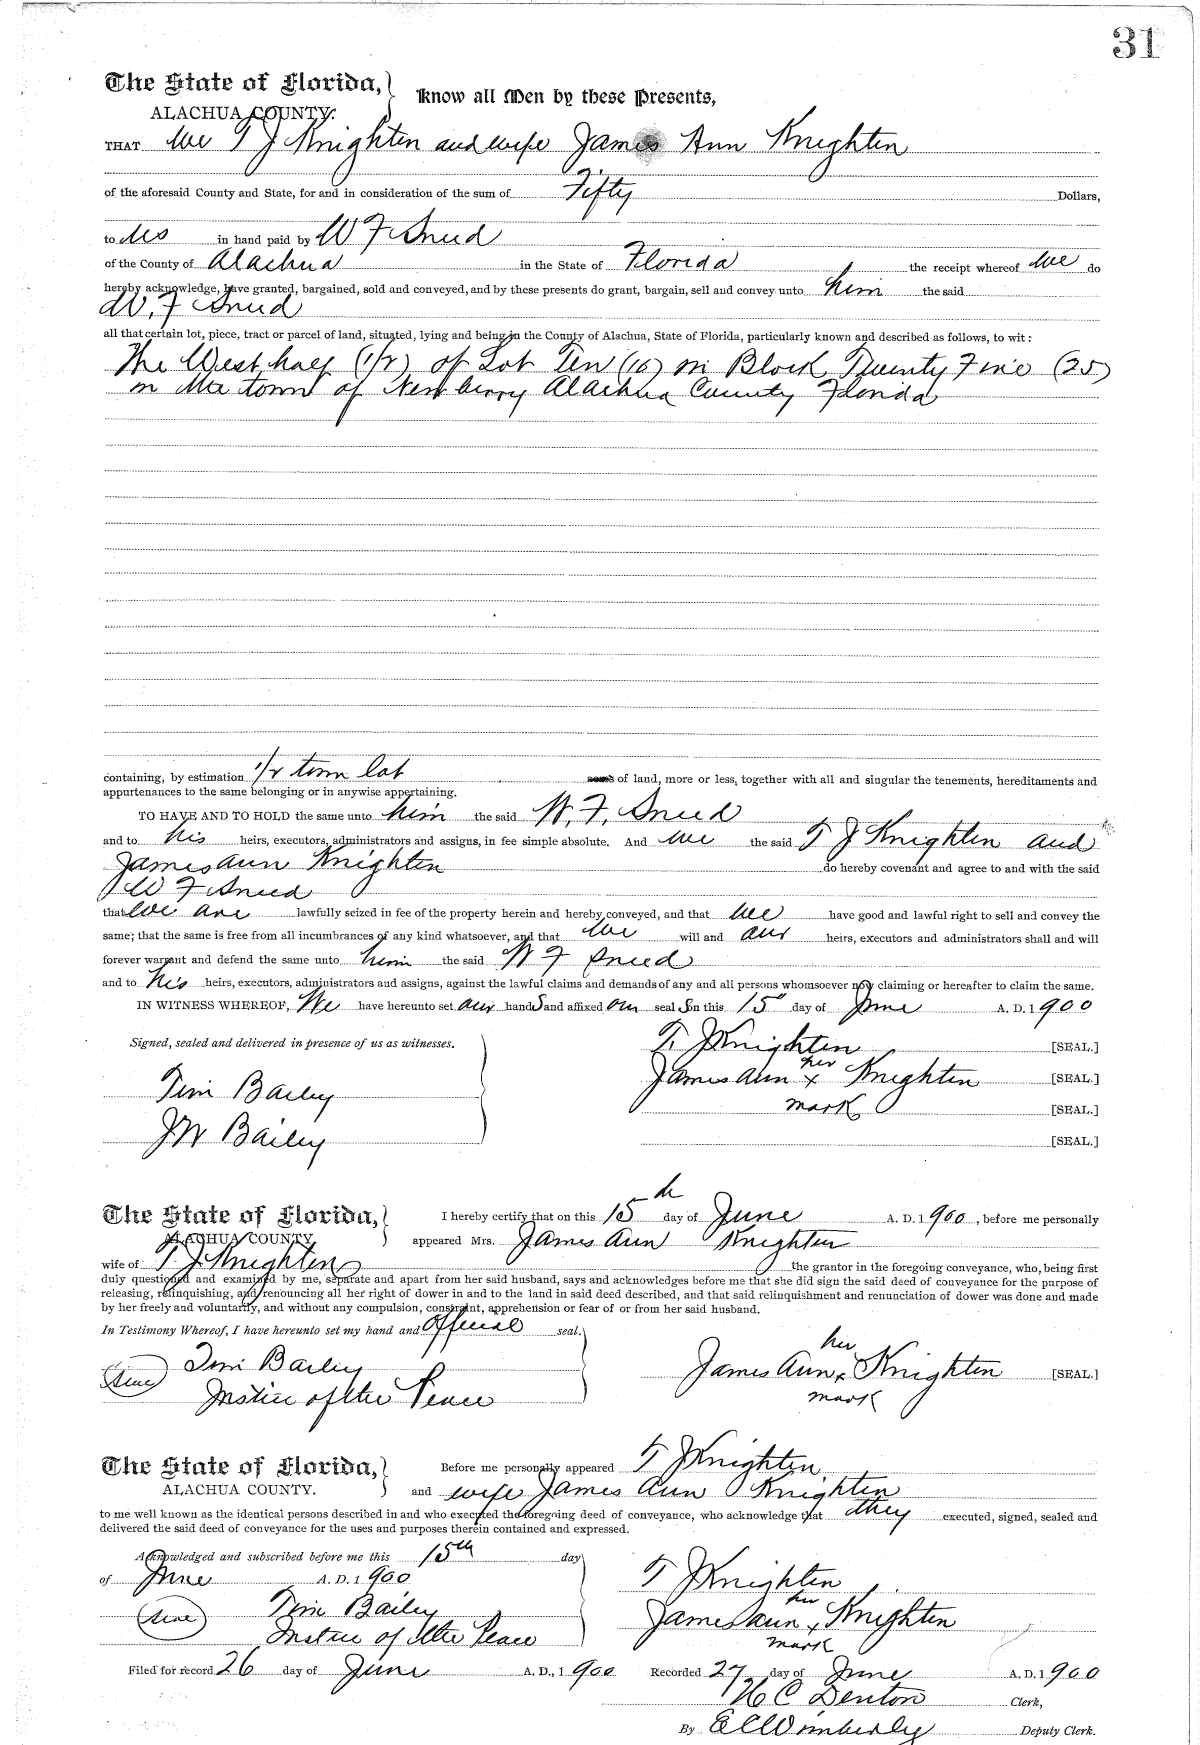 31
The State of Florida, Know all Men by these Presents,
ALACHUA COUNTY.
THAT We T J Knighten and wife James Ann Knighten
of the aforesaid County and State, for and in consideration of the sum of Fifty Dollars,
to us in hand paid by W F Sneed
of the County of Alachua in the State of Florida the receipt whereof we do
hereby acknowledge, have granted, bargained, sold and conveyed, and by these presents do grant, bargain, sell and convey unto him the said
W. F Sneed
all that certain lot, piece, tract or parcel of land, situated, lying and being in the County of Alachua, State of Florida, particularly known and described as follows, to wit:
The West half (1/2) of Lot Ten (10) in Block Twenty Five (25)
in the town of Newberry Alachua County Florida
containing, by estimation 1/2 town lot acres of land, more or less, together with all and singular the tenements, hereditaments and
appurtenances to the same belonging or in anywise appertaining.
TO HAVE AND TO HOLD the same unto him the said W. F. Sneed
and to his heirs, executors, administrators and assigns, in fee simple absolute. And we the said T J Knighten and
James Ann Knighten do hereby covenant and agree to and with the said
W F Sneed
that we are lawfully seized in fee of the property herein and hereby conveyed, and that we have good and lawful right to sell and convey the
same; that the same is free from all incumbrances of any kind whatsoever, and that we will and our heirs, executors and administrators shall and will
forever warrant and defend the same unto him the said W F Sneed
and to his heirs, executors, administrators and assigns, against the lawful claims and demands of any and all persons whomsoever now claiming or hereafter to claim the same.
IN WITNESS WHEREOF, We have hereunto set our hands and affixed our seals on this 15 day of June A. D. 1900
Signed, sealed and delivered in presence of us as witnesses. T. J Knighten [SEAL.]
her
Tim Bailey James Ann x Knighten [SEAL.]
mark [SEAL.]
J W Bailey [SEAL.]
The State of Florida, I hereby certify that on this 15th day of June A. D. 1900, before me personally
ALACHUA COUNTY. appeared Mrs. James Ann Knighten
wife of T. J. Knighten the grantor in the foregoing conveyance, who, being first
duly questioned and examined by me, separate and apart from her said husband, says and acknowledges before me that she did sign the said deed of conveyance for the purpose of
releasing, relinquishing, and renouncing all her right of dower in and to the land in said deed described, and that said relinquishment and renunciation of dower was done and made
by her freely and voluntarily, and without any compulsion, constraint, apprehension or fear of or from her said husband.
In Testimony Whereof, I have hereunto set my hand and official seal.
her
Tim Bailey James Ann x Knighten [SEAL.]
Justice of the Peace mark
The State of Florida, Before me personally appeared T J Knighten
ALACHUA COUNTY. and wife James Ann Knighten
to me well known as the identical persons described in and who executed the foregoing deed of conveyance, who acknowledge that they executed, signed, sealed and
delivered the said deed of conveyance for the uses and purposes therein contained and expressed.
Acknowledged and subscribed before me this 15th day
of June A. D. 1900 T J Knighten
her
Tim Bailey James Ann x Knighten
Justice of the Peace mark
Filed for record 26 day of June A. D., 1900 Recorded 27 day of June A. D. 1900
H C Denton Clerk,
By E C Wimberly Deputy Clerk.